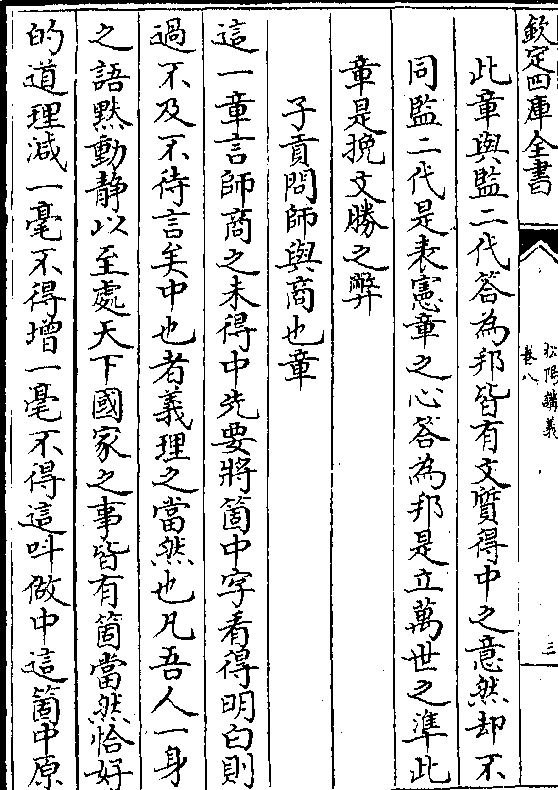 欽定四庫全書
松陽講義
卷八
三
此章與監二代答為邦皆有文質得中之意然却不
同監二代是表憲章之心答為邦是立萬世之準此
章是挽文勝之弊
子貢問師與商也章
這一章言師商之未得中先要將箇中字看得明白則
過不及不待言矣中也者義理之當然也凡吾人一身
之語黙動靜以至處天下國家之事皆有箇當然恰好
的道理減一毫不得增一毫不得這叫做中這箇中原